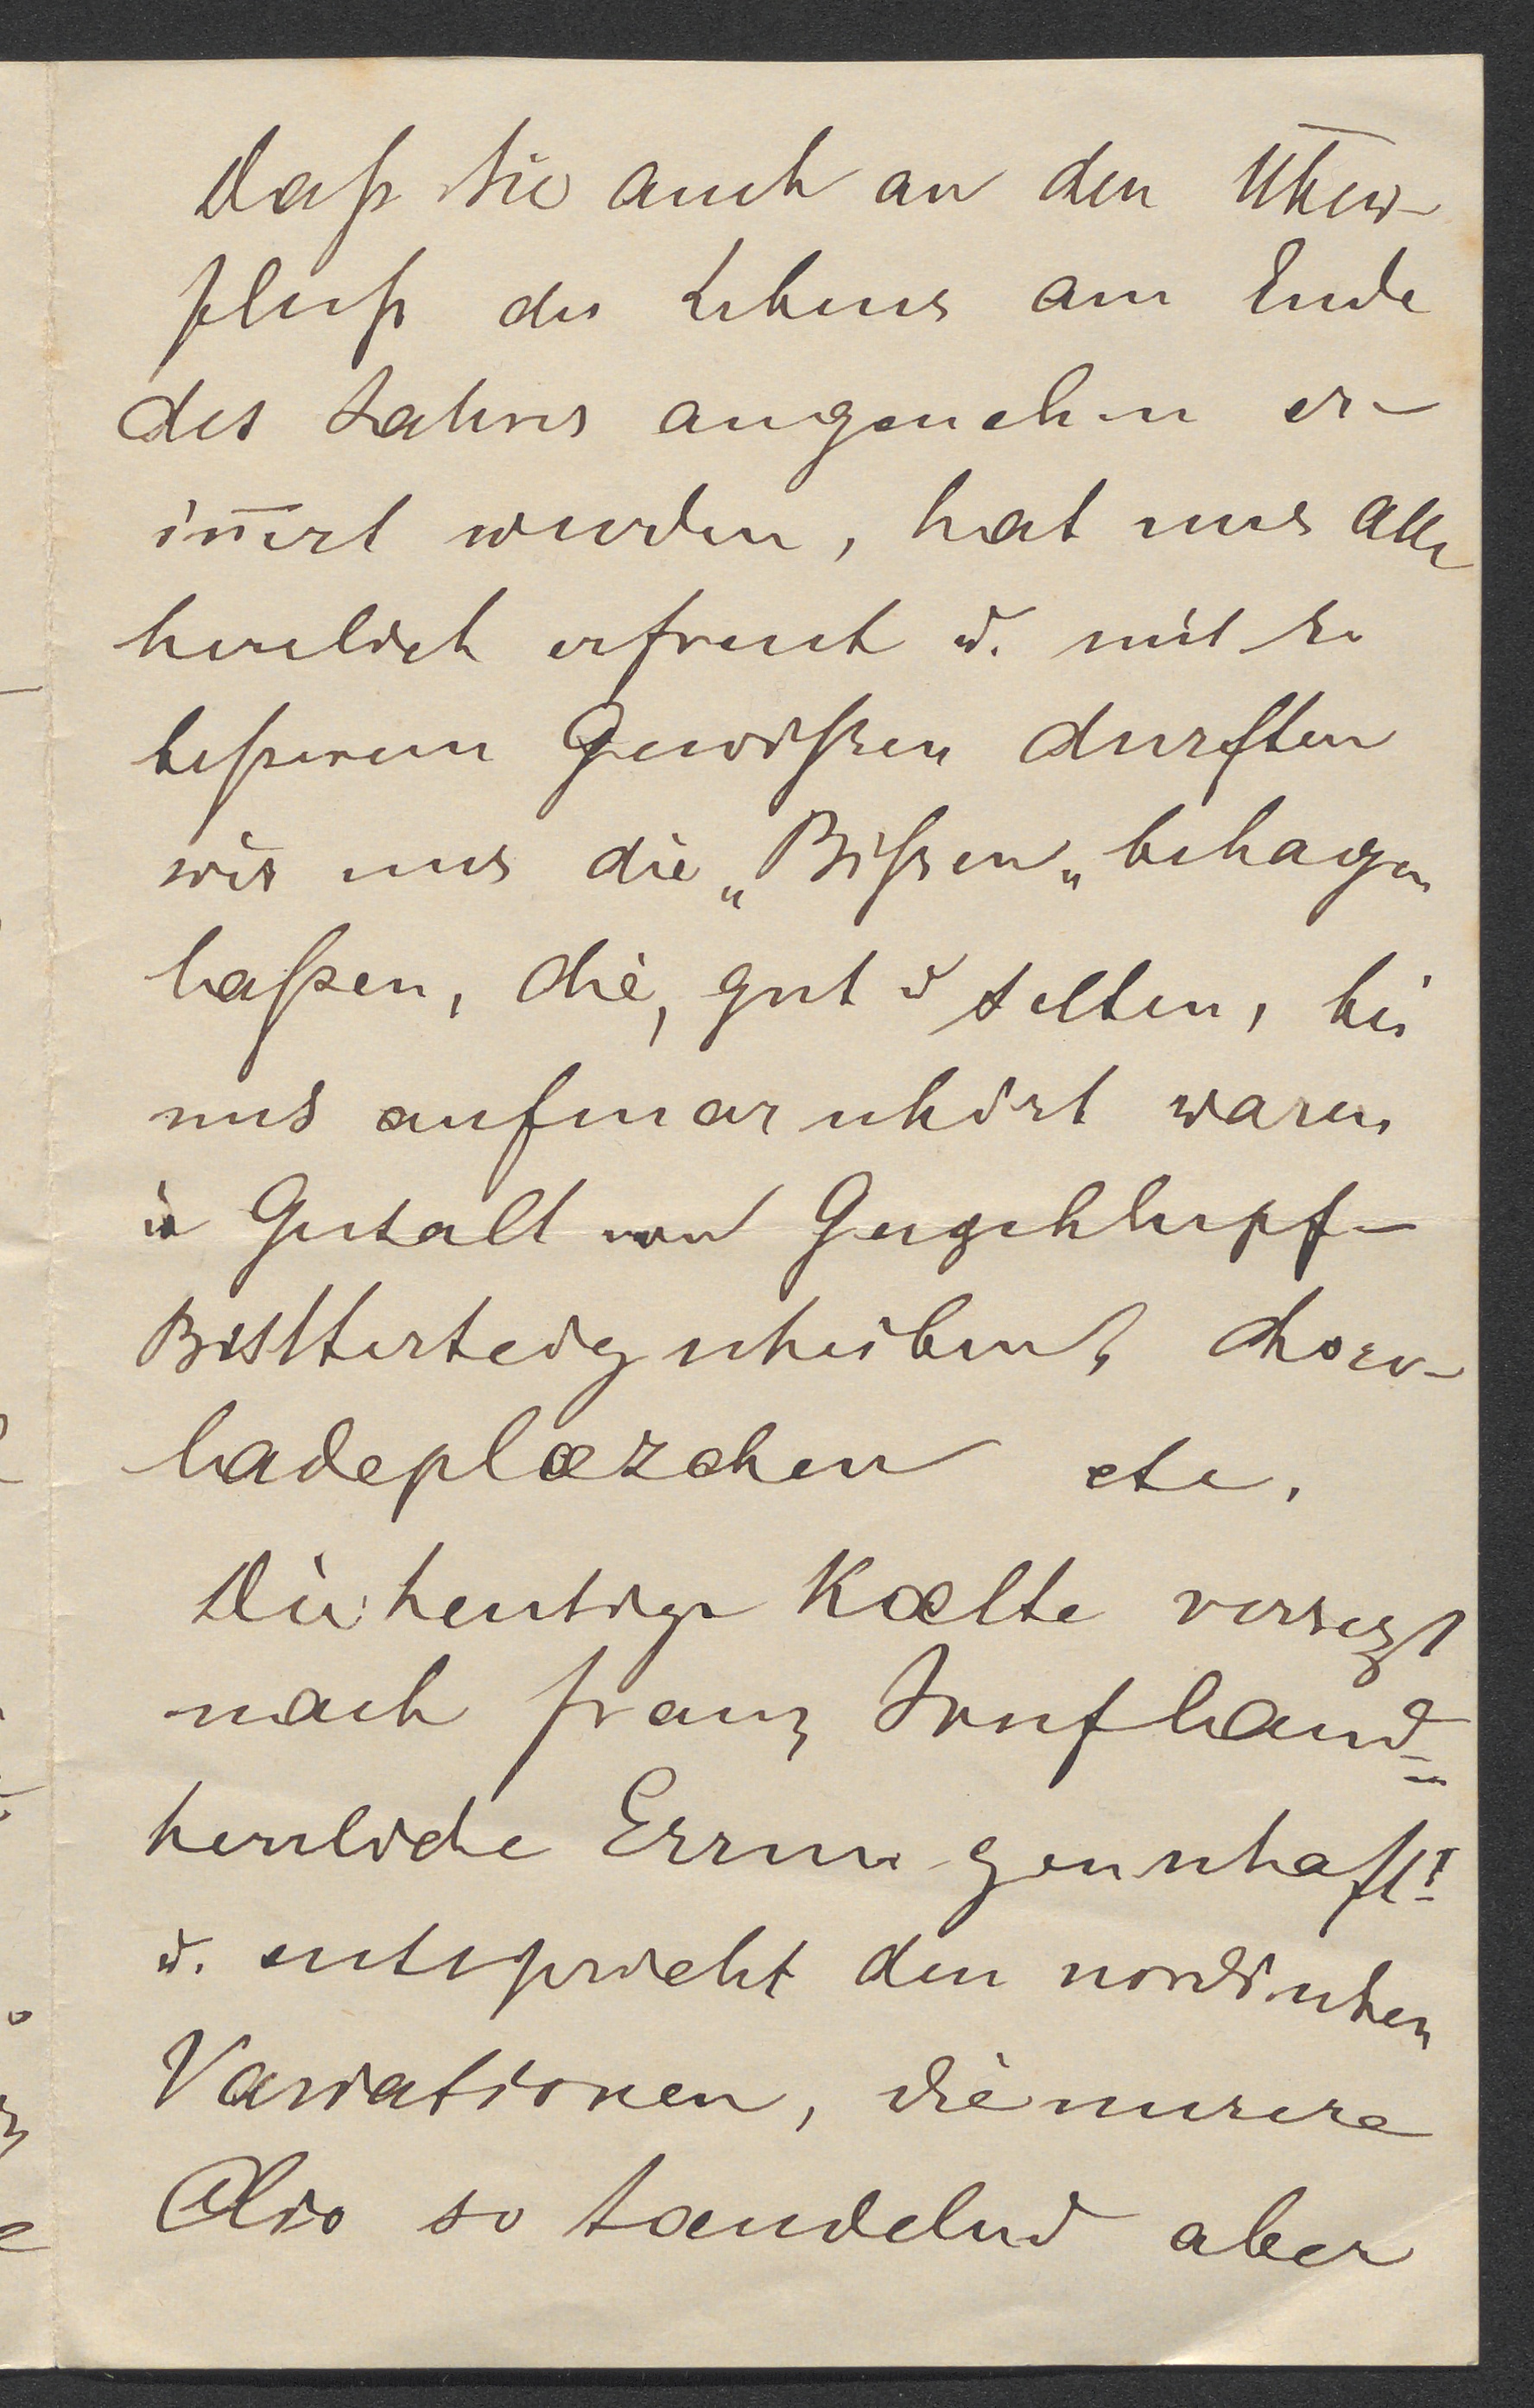 Daß Sie auch an den Über-
fluß des Lebens am Ende
des Jahres angenehm er-
iñert wurden, hat uns alle
herzlich erfreut u. mit so
beßerem Gewißen durften
wir uns die „Bißen„ behagen
laßen, die, gut u selten, bei
uns aufmarschirt waren
in Gestalt von Gugehlupf-
Bütterteigscheiben, choco-
ladeplæzchen etc.
Die heutige Kælte versezt
nach franz
herrliche Errungenschaft!
u. entspricht den nordischen
Variationen, die unsere
Clio so tændelnd aber